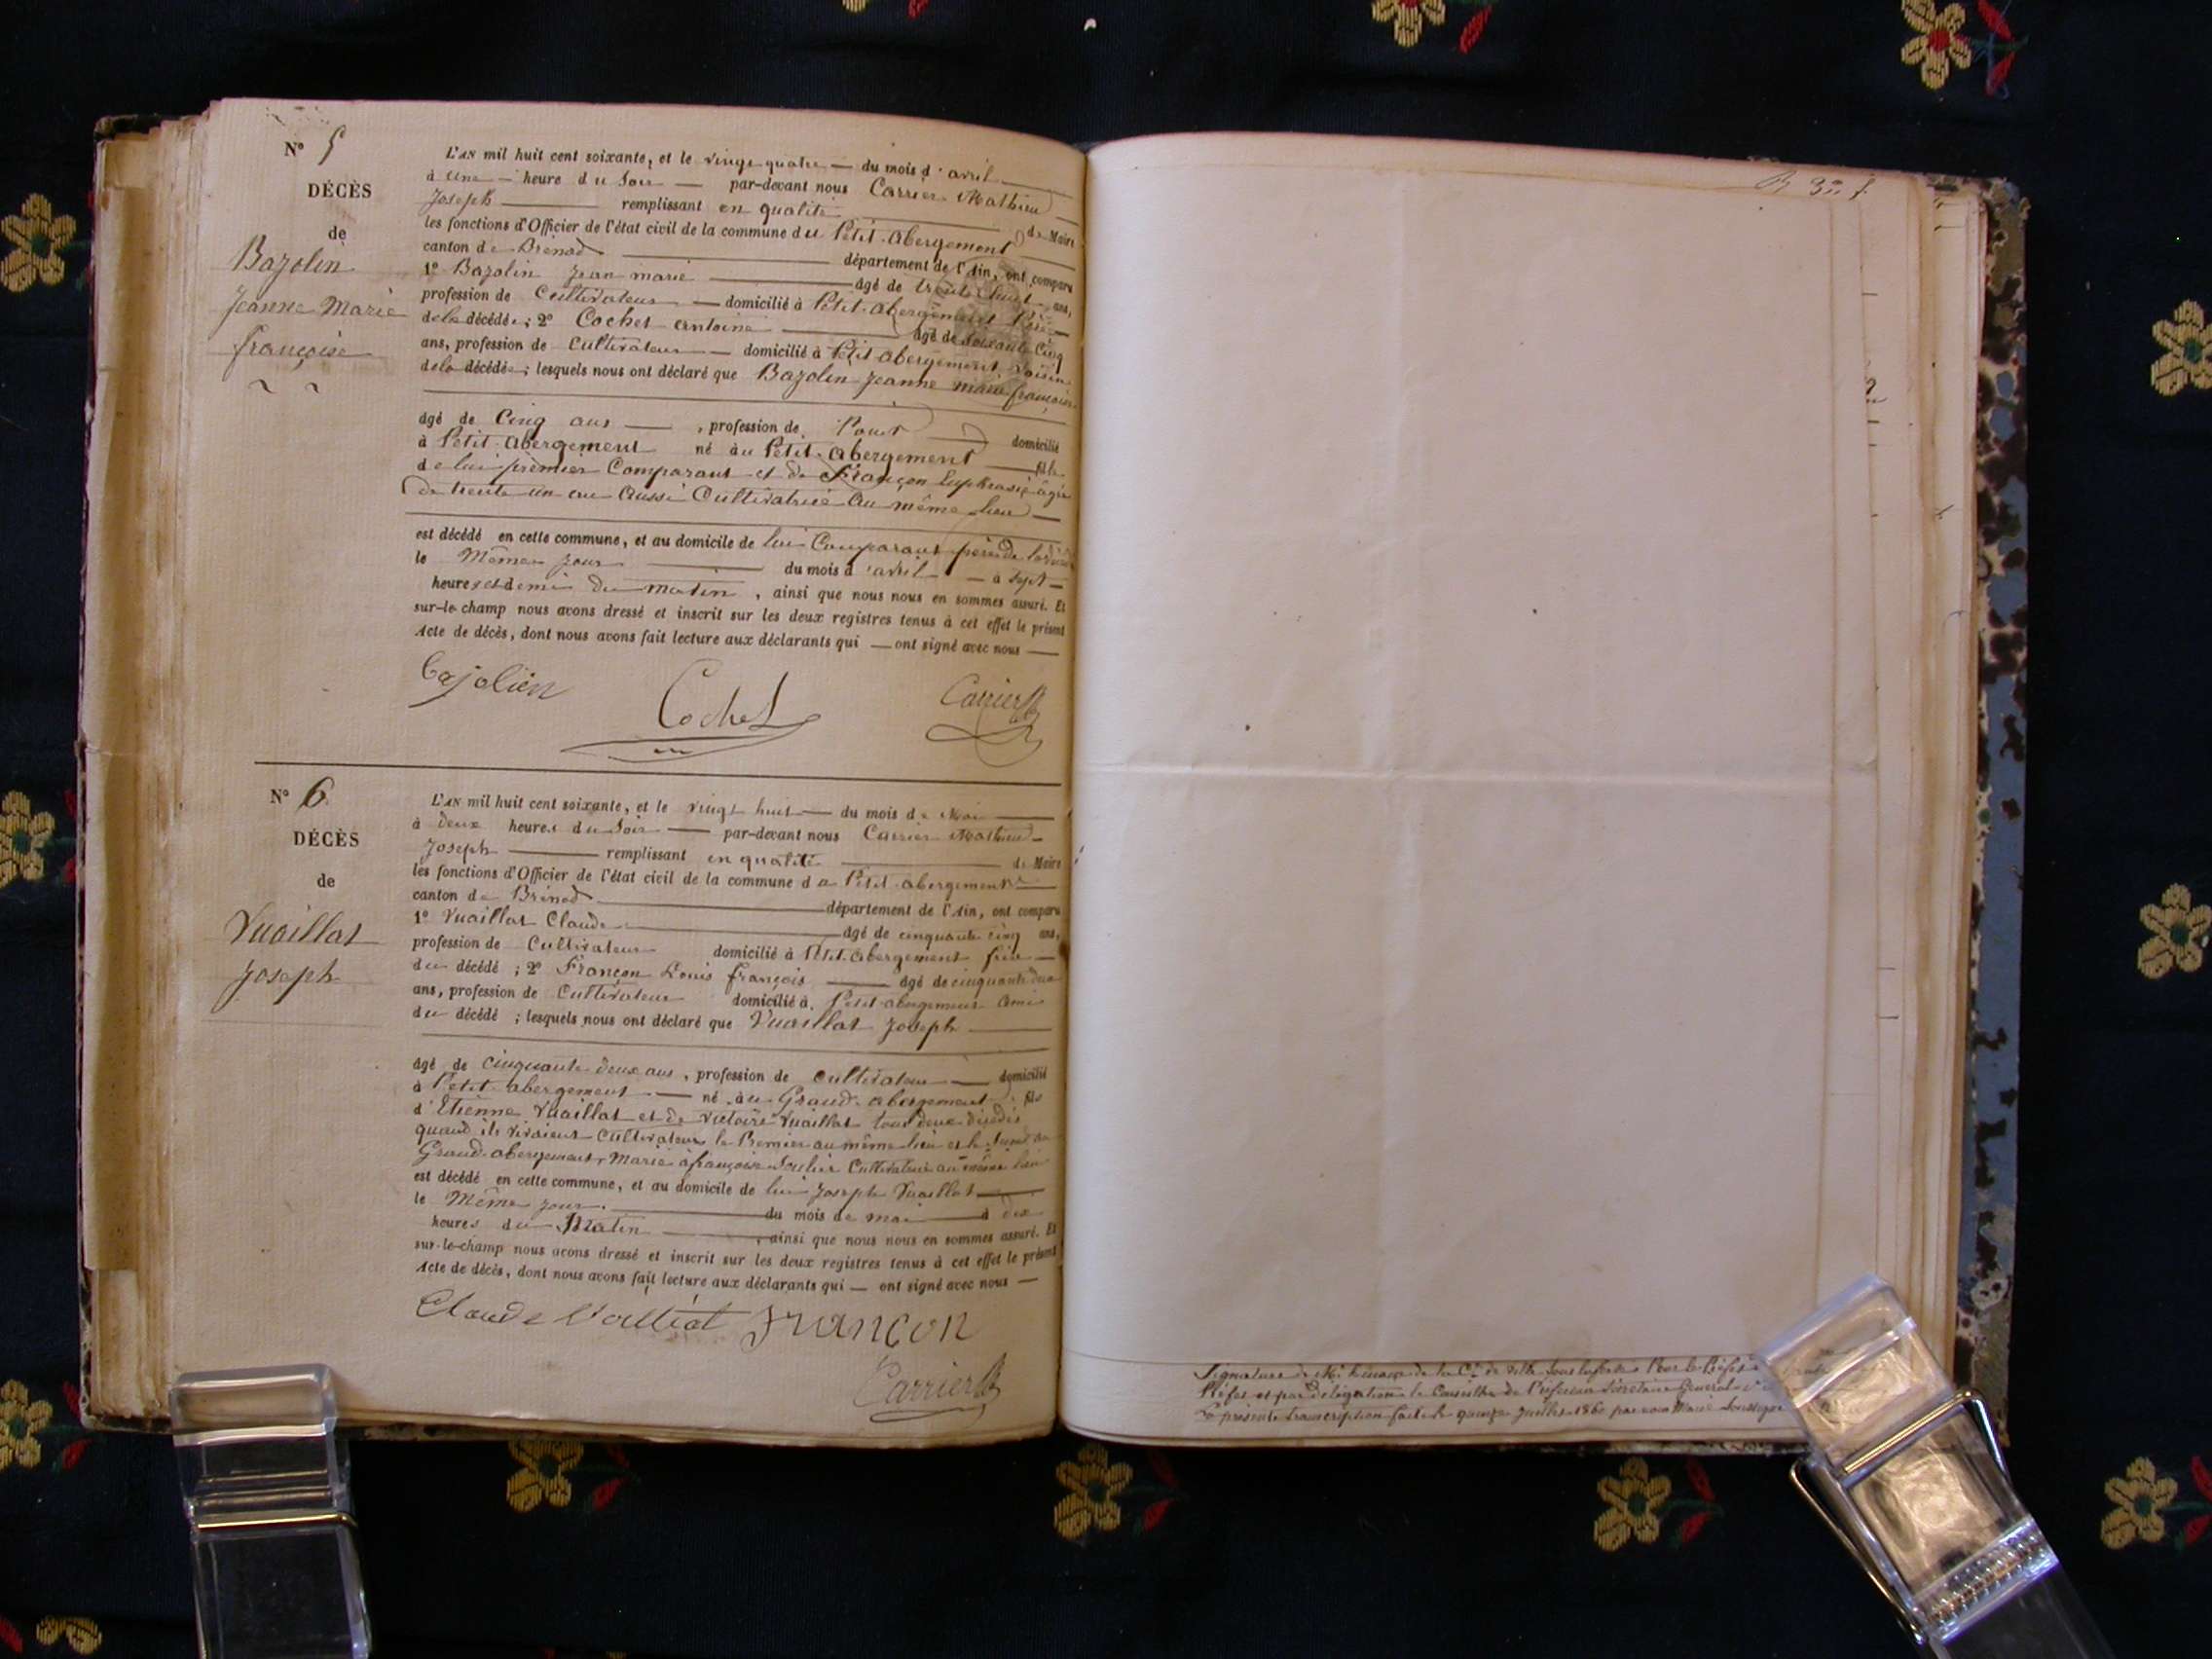 N° 5
DÉCÈS
de
Bajolin
Jeanne Marie
françoise
L'AN mil huit cent soixante, et le vingt quatre — du mois d'avril —
à une — heure du Soir — par-devant nous Carrier Mathieu
Joseph — remplissant en qualité — de Maire
les fonctions d'Officier de l'état civil de la commune du Petit-abergement
canton de Brénod — département de l'Ain, ont comparu
1° Bajolin Jean marie — âgé de trente huit ans,
profession de Cultivateur — domicilié à Petit-abergement Père —
de la décédée; 2° Cochet antoine — âgé de soixante Cinq
ans, profession de Cultivateur — domicilié à Petit abergement voisin
de la décédée; lesquels nous ont déclaré que Bajolin Jeanne marie françoise
âgé de Cinq ans —, profession de — domicilié
à Petit-abergement né au Petit-abergement — fille
de lui premier Comparant et de Françon Euphrasie âgée
de trente un an aussi Cultivatrice au même lieu —
est décédé en cette commune, et au domicile de lui Comparant père de la
le Même jour — du mois d'avril — à sept —
heures et demi du matin, ainsi que nous nous en sommes assuré. Et
sur-le-champ nous avons dressé et inscrit sur les deux registres tenus à cet effet le présent
Acte de décès, dont nous avons fait lecture aux déclarants qui — ont signé avec nous —
bajolien Cochet Carrier
N° 6
DÉCÈS
de
Vuaillat
Joseph
L'AN mil huit cent soixante, et le vingt huit — du mois de Mai —
à deux heures du Soir — par-devant nous Carrier Mathieu —
Joseph — remplissant en qualité — de Maire
les fonctions d'Officier de l'état civil de la commune du Petit-abergement —
canton de Brénod — département de l'Ain, ont comparu
1° Vuaillat Claude — âgé de cinquante cinq ans,
profession de Cultivateur domicilié à Petit-abergement frère —
du décédé; 2° Françon Louis françois — âgé de cinquante
ans, profession de Cultivateur domicilié à Petit-abergement ami
du décédé; lesquels nous ont déclaré que Vuaillat Joseph —
âgé de cinquante deux ans, profession de Cultivateur — domicilié
à Petit-abergement — né au Grand-abergement, fils
d'Etienne Vuaillat et de Victoire Vuaillat tous deux décédés
quand ils vivaient Cultivateurs le Premier au même lieu et la
Grand-abergement, Marié à françoise Cultivatrice au même lieu
est décédé en cette commune, et au domicile de lui Joseph Vuaillat —
le Même jour — du mois de mai — à dix
heures du Matin —, ainsi que nous nous en sommes assuré. Et
sur-le-champ nous avons dressé et inscrit sur les deux registres tenus à cet effet le présent
Acte de décès, dont nous avons fait lecture aux déclarants qui — ont signé avec nous —
Claude Françon
Carrier
Préfet et par délégation le Conseiller de Préfecture Secrétaire Général
La présente transcription faite le quinze Juillet 1860 par nous Maire Soussigné